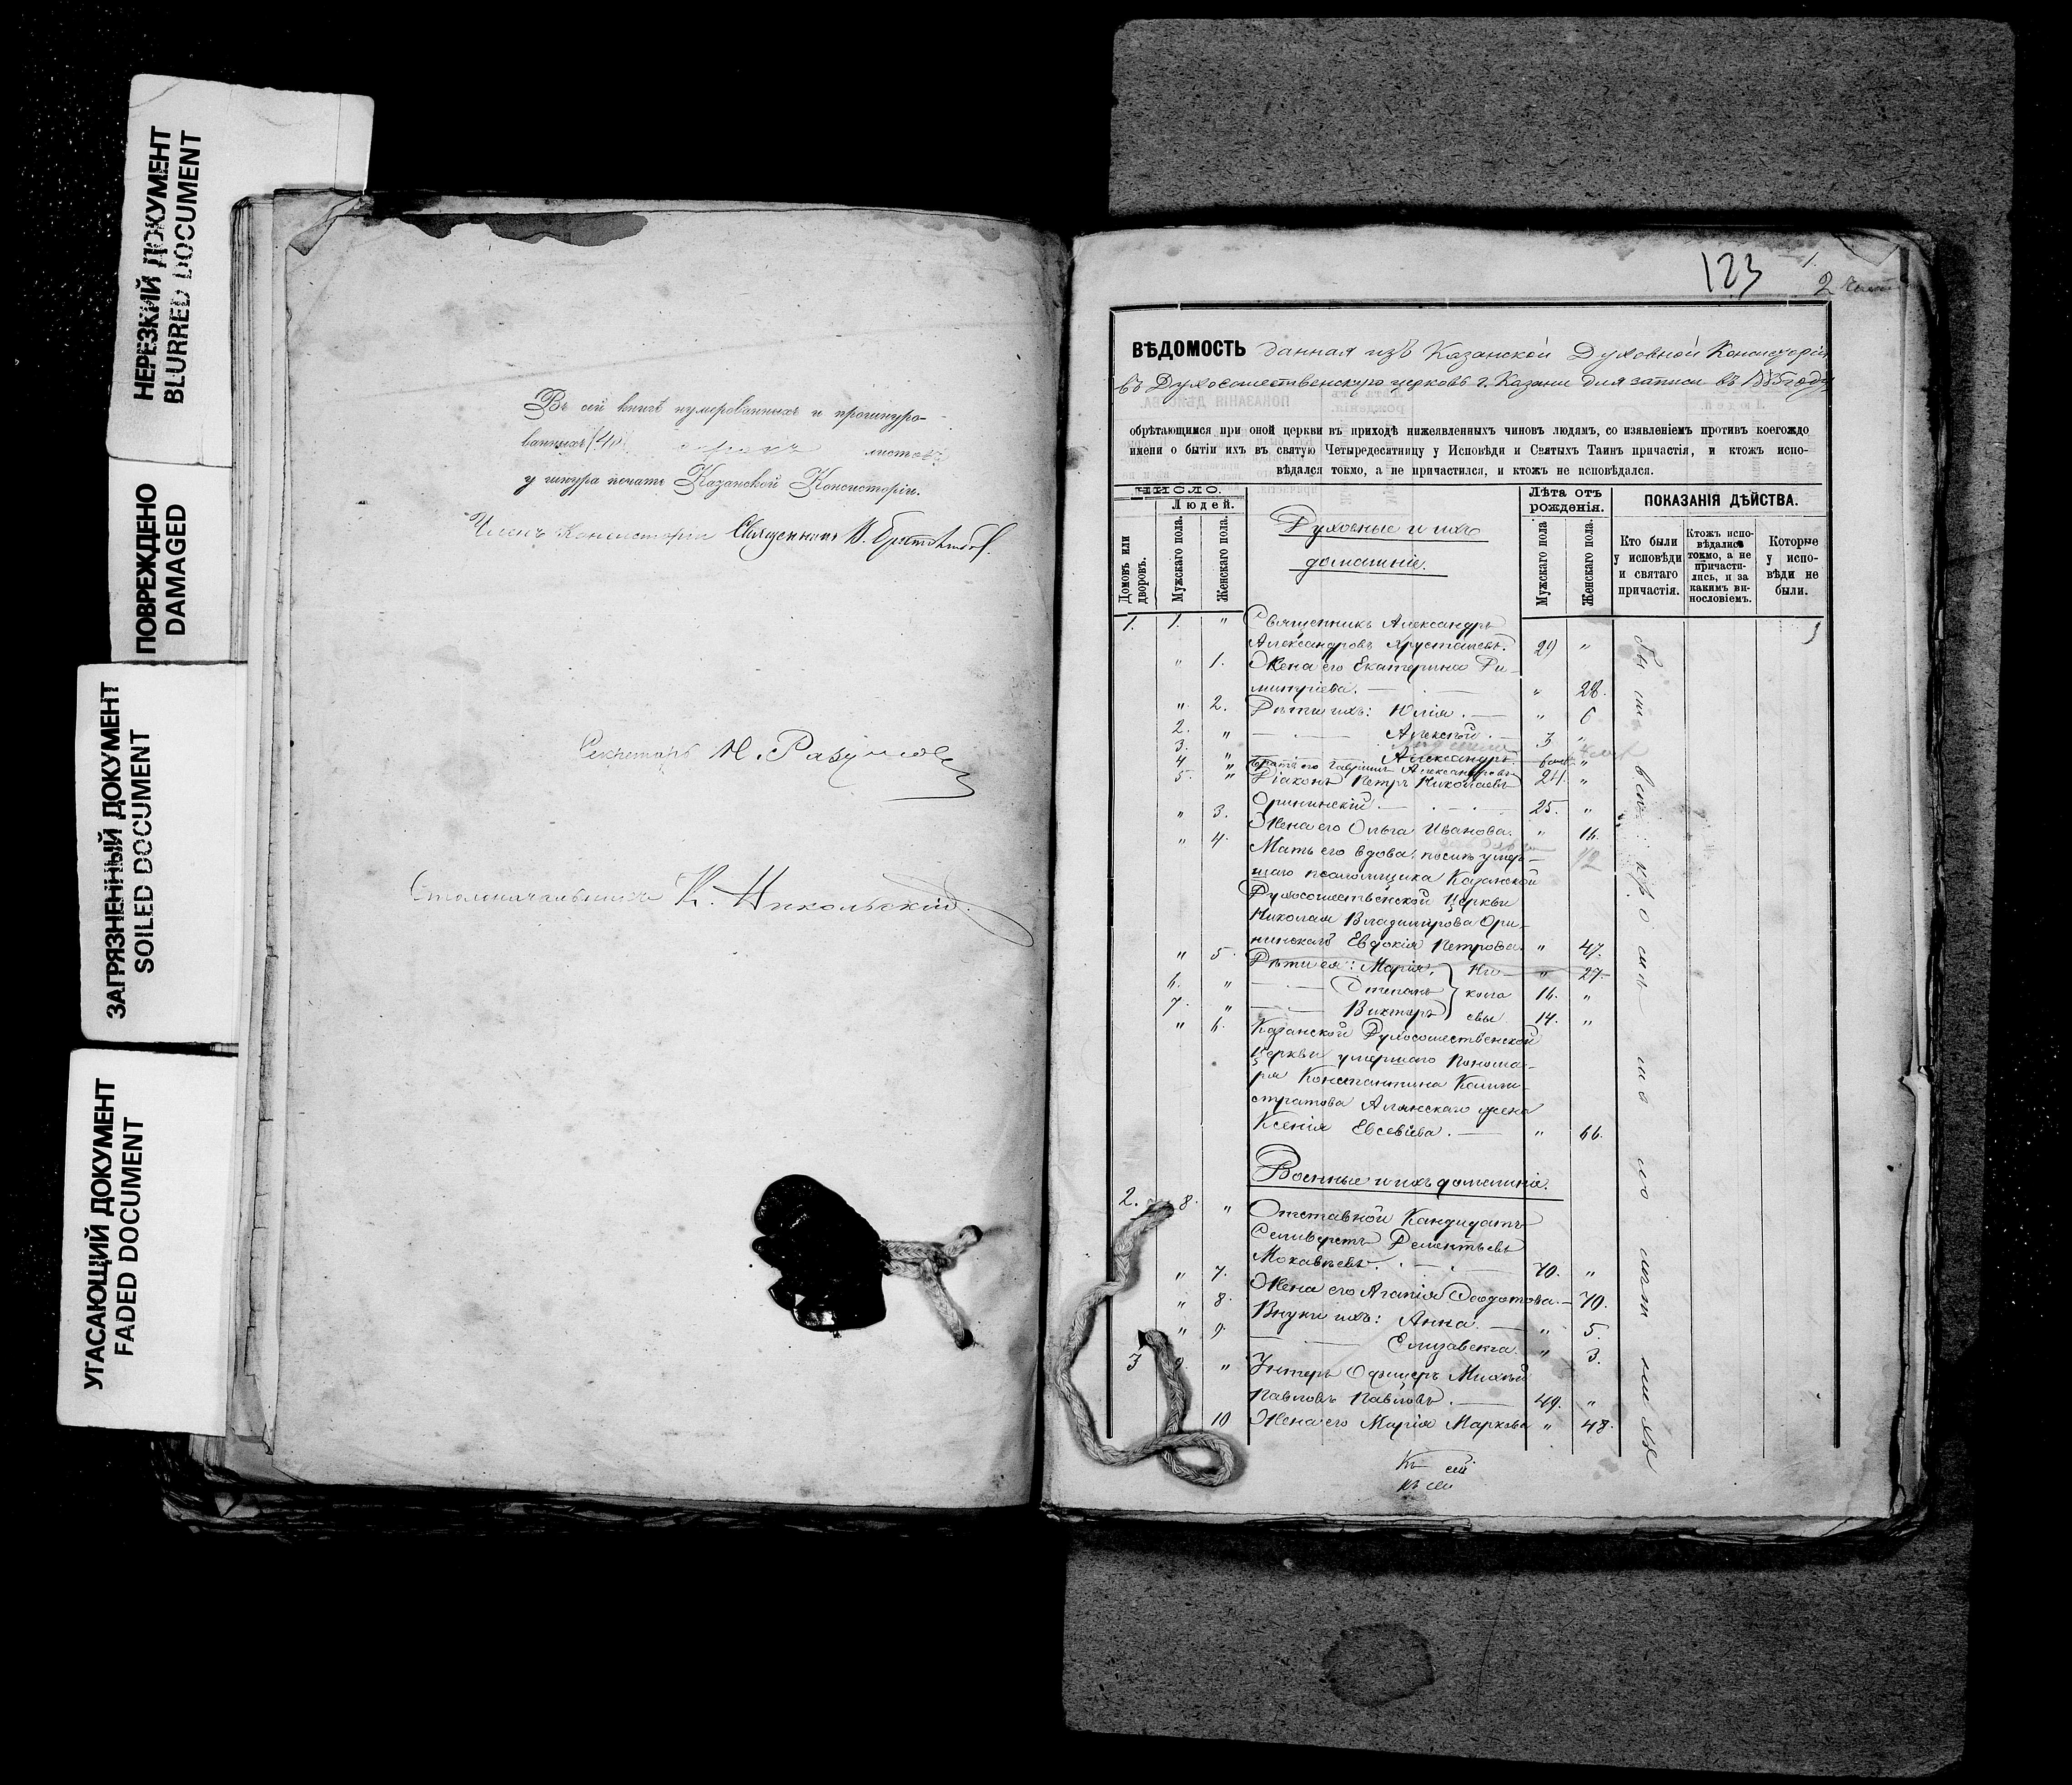 НЕРЕЗКИЙ ДОКУМЕНТ
BLURRED DOCUMENT
ПОВРЕЖДЕНО
DAMAGED
ЗАГРЯЗНЕННЫЙ ДОКУМЕНТ
SOILED DOCUMENT
УГАСАЮЩИЙ ДОКУМЕНТ
FADED DOCUMENT
Въ сей книгѣ нумерованныхъ и прошнуро-
ванныхъ листовъ
у шнура печать Казанской Консисторіи.
Членъ Консисторіи Священникъ
Секретарь Н. Разумовъ
Столоначальникъ К. Никольскій.
123 1.
2
ВѢДОМОСТЬ данная изъ Казанской Духовной Консисторіи
въ Духосошественскую церковь г. Казани для записи въ 1885 году
обрѣтающимся при оной церкви въ приходѣ нижеявленныхъ чиновъ людямъ, со изявленіемъ противъ коегождо
имени о бытіи ихъ въ святую Четыредесятницу у Исповѣди и Святыхъ Таинъ причастія, и ктожъ испо-
вѣдался токмо, а не причастился, и ктожъ не исповѣдался.
ЧИСЛО.
Людей.
Домовъ или дворовъ.
Мужскаго пола.
Женскаго пола.
Духовные и ихъ
домашніе.
Лѣта отъ рожденія.
Мужскаго пола
Женскаго пола.
ПОКАЗАНІЯ ДѢЙСТВА.
Кто были у исповѣди и святаго причастія.
Ктожъ испо-вѣдался токмо, а не причасти-лись, и за какимъ ви-нословіемъ.
Которые у испо-вѣди не были.
1. 1. " Священникъ Александръ
Александровъ Хрусталевъ. 29 "
" 1. Жена его Екатерина Ди-
митріева. " 28.
" 2. Дѣти ихъ: Юлія. " 6
2. " Алексѣй. 3. "
3. " Александръ. "
4. " Братъ его Гавріилъ Александровъ 24. "
5. " Діаконъ Петръ Николаевъ
Орининскій. 25. "
" 3. Жена его Ольга Иванова. " 16.
" 4. Мать его вдова, послѣ умер-
шаго псаломщика Казанской
Духосошественской церкви
Николая Владимірова Ори-
нинскаго Евдокія Петрова. " 47.
" 5. Дѣти ея: Марія, Ни " 27.
6. " Степанъ кола 16. "
7. " Викторъ евы 14. "
" 6. Казанской Духосошественской
церкви умершаго Понома-
ря Константина Калли-
стратова Алянскаго жена
Ксенія Евсевіева. " 66.
Военные и ихъ домашніе.
2. 8. " Отставной Кандидатъ
Селиверстъ Дементьевъ
Мокавѣевъ. 70. "
" 7. Жена его Агапія Ѳеодотова. 70.
" 8. Внуки ихъ: Анна. " 5.
" 9. Елизавета. " 3.
3 9. " Унтеръ Офицеръ Михѣй
Павловъ Павловъ. 49. "
10 Жена его Марія Маркова " 48.
Къ сей
Къ сей